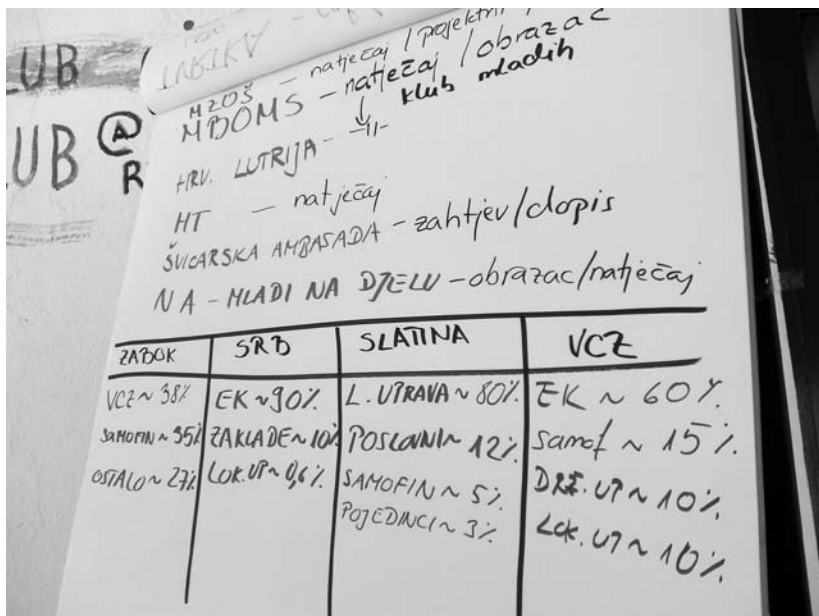 UB
UB @
R
MZOŠ — natječaj / projektni
MBOMS — natječaj / obrazac
↓ klub mladih
HRV. LUTRIJA - -11-
HT — natječaj
ŠVICARSKA AMBASADA - zahtjev/dopis
NA - MLADI NA DJELU - obrazac/natječaj
ZABOK SRB SLATINA VCZ
VCZ ~ 38% EK ~ 90% L. UPRAVA ~ 80% EK ~ 60%
SAMOFIN ~ 35% ZAKLADE ~ 10% POSLOVNI ~ 12% samof ~ 15%
OSTALO ~ 27% LOK. UP ~ 0,6% SAMOFIN ~ 5% DRŽ. UP ~ 10%
POJEDINCI ~ 3% LOK. UP ~ 10%